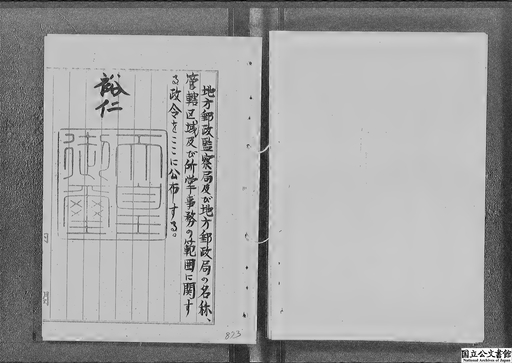 地方郵政監察局及び地方郵政局の名称、
管轄区域及び所掌事務の範囲に関す
る政令をここに公布する。
裕仁
天皇
御璽
823
国立公文書館
National Archives of Japan